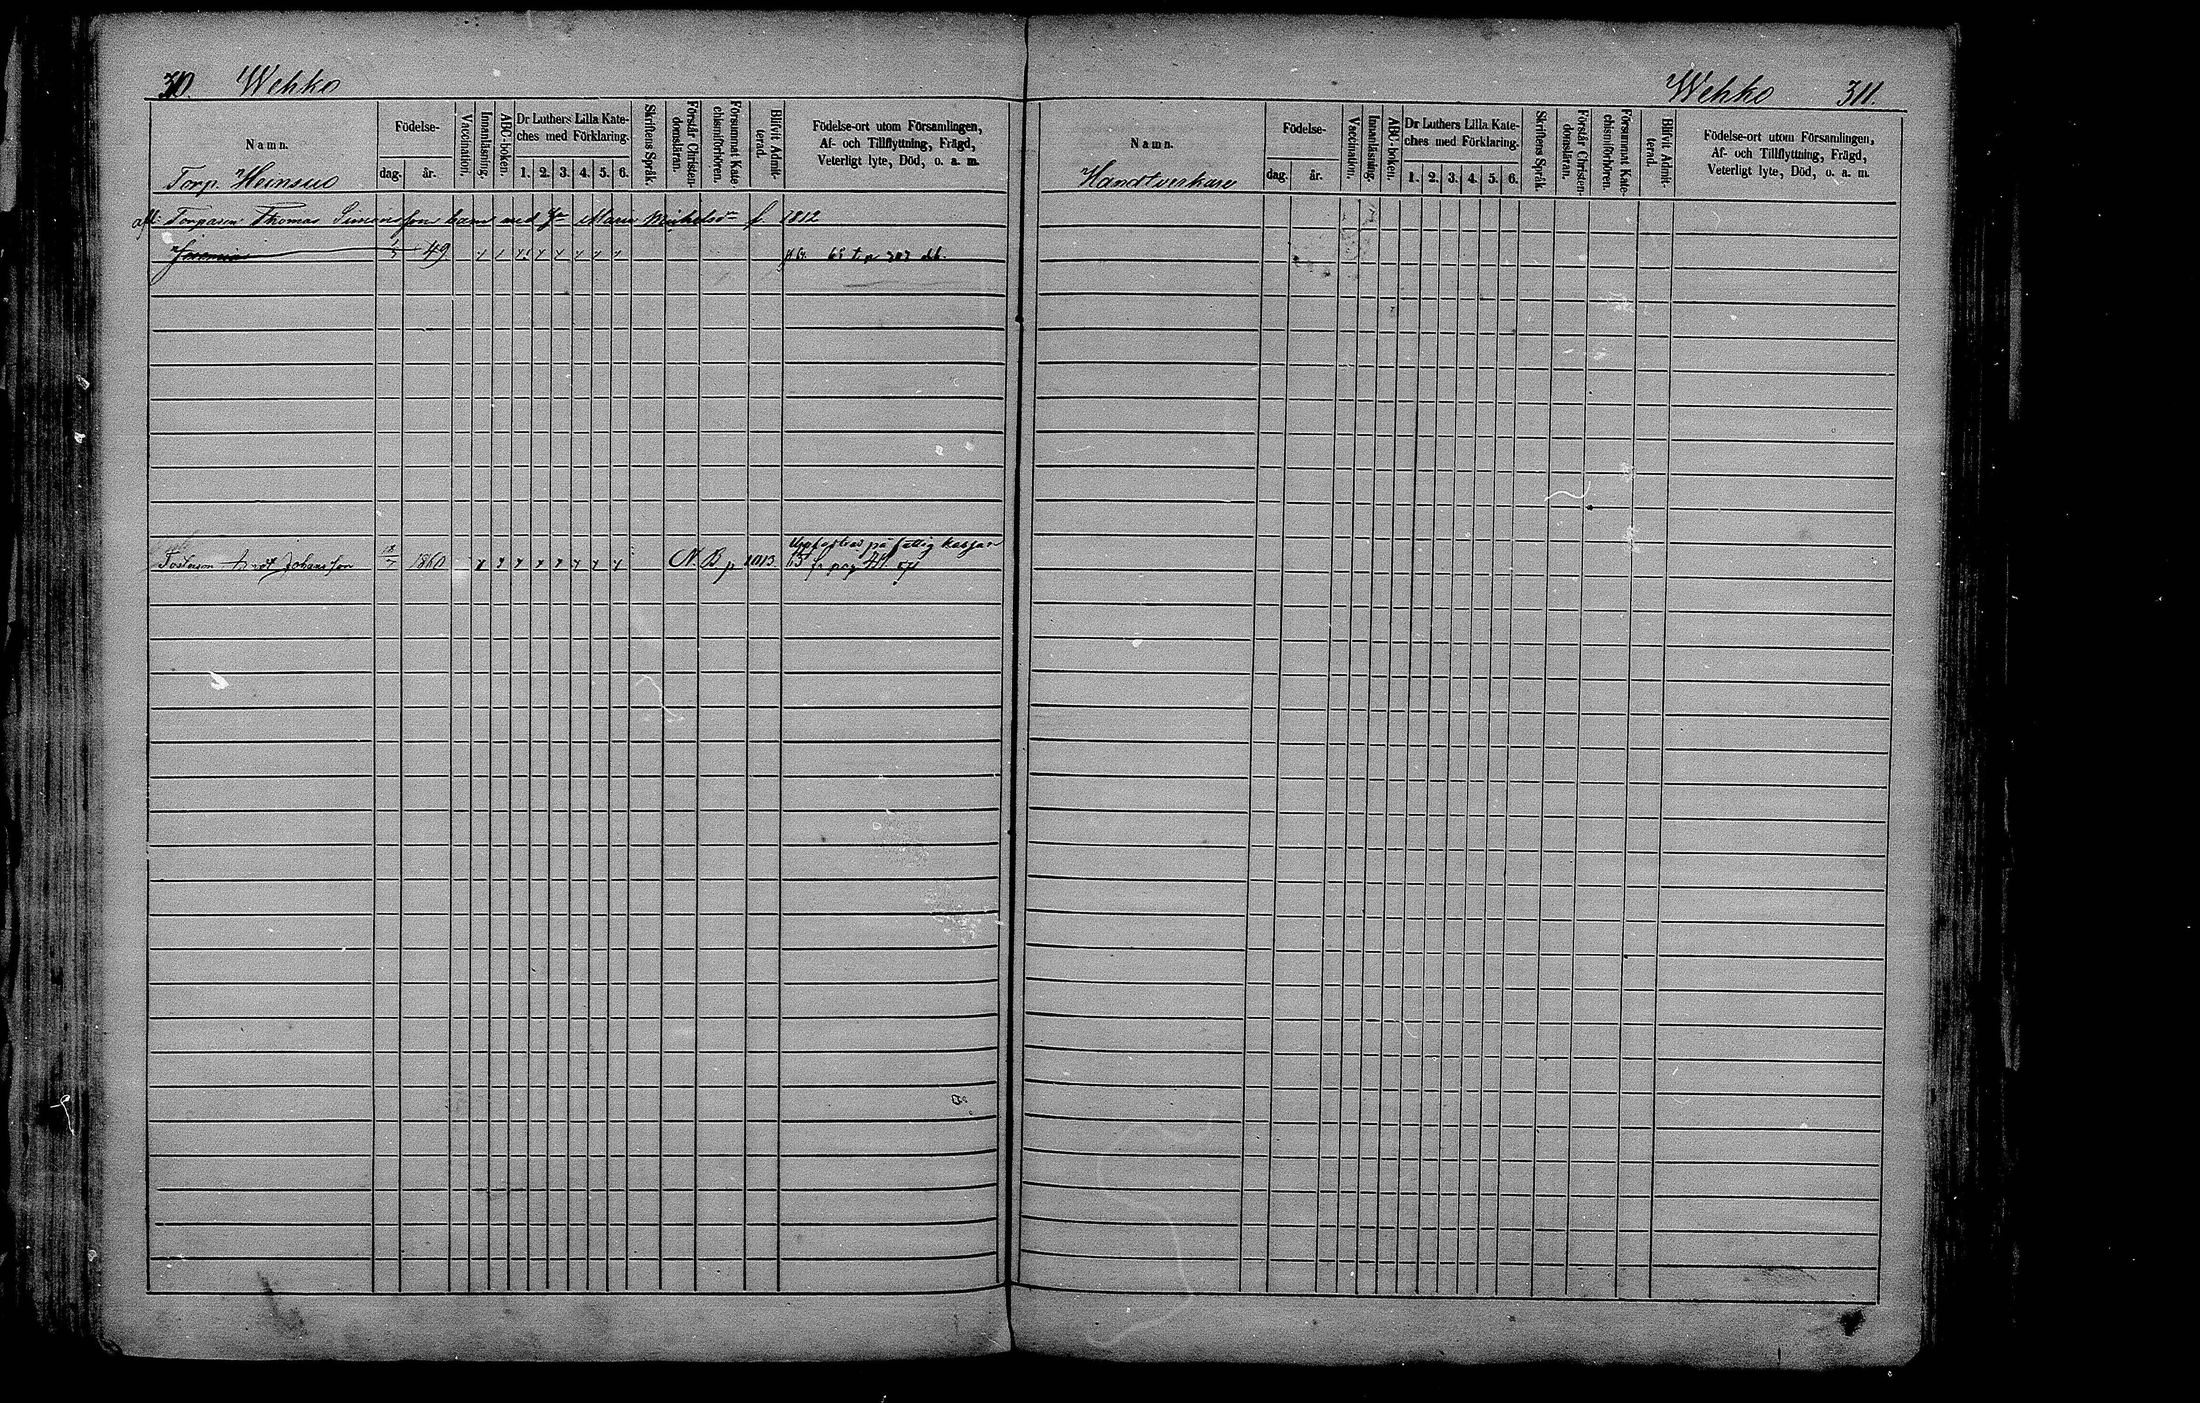 310. Wehko
Namn.
Födelse-
dag. år.
Vaccination.
Innanläsning.
ABC-boken.
Dr Luthers Lilla Kate-
ches med Förklaring.
1. 2. 3. 4. 5. 6.
Skriftens Språk.
Förstår Christen-
domsläran.
Försummat Kate
chismiförhören.
Blifvit Admit-
terad.
Födelse-ort utom Församlingen,
Af- och Tillflyttning, Frägd,
Veterligt lyte, Död, o. a. m.
Torp. Heinsuo
afl. Torparen Thomas Simonsson barn med Maria Michelsdr f. 1812
49 65 t. p 303
Uppfostras på fattig kassan
Fosterson Johansson 1860 N. B p 1013. 65 fr pag
Wehko 311.
Namn.
Födelse-
dag. år.
Vaccination.
Innanläsning.
ABC-boken.
Dr Luthers Lilla Kate-
ches med Förklaring.
1. 2. 3. 4. 5. 6.
Skriftens Språk
Förstår Christen-
domsläran.
Försummat Kate-
chismiförhören.
Blifvit Admit-
terad.
Födelse-ort utom Församlingen,
Af- och Tillflyttning, Frägd,
Veterligt lyte, Död, o. a. m.
Handtverkare